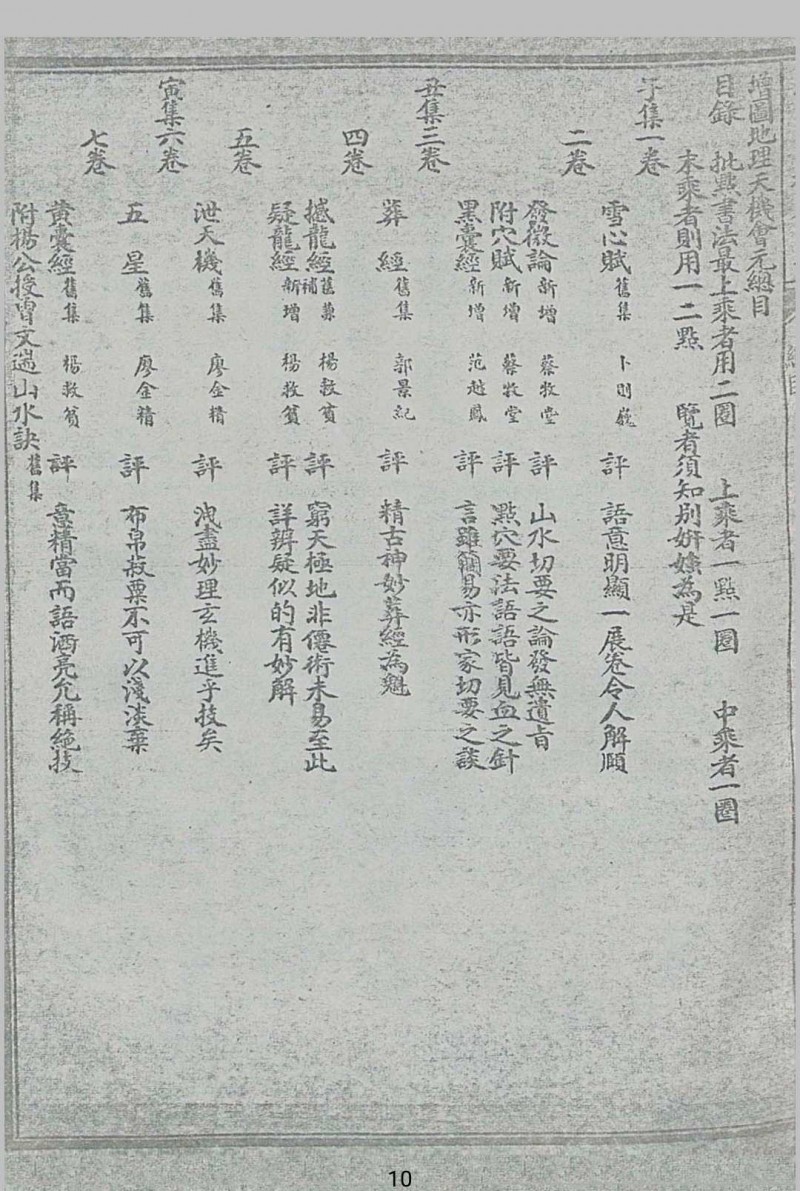 增圖地理天機會元總目
目錄 批點書法最上乘者用二圈 上乘者一點一圈 中乘者一圈
末乘者則用一二點 覽者須知別妍媸為是
子集一卷
雪心賦 舊集 卜則巍 評 語意明顯一展卷令人解頤
二卷
發微論 新增 蔡牧堂 評 山水切要之論發無遺旨
附穴賦 新增 蔡牧堂 評 點穴要法語語皆見血之針
黑囊經 新增 范越鳳 評 言雖簡易亦形家切要之談
丑集三卷
葬經 舊集 郭景純 評 精古神妙葬經為魁
四卷
撼龍經 舊集補 楊救貧 評 窮天極地非僊術未易至此
疑龍經 新增 楊救貧 評 詳辨疑似的有妙解
五卷
泄天機 舊集 廖金精 評 洩盡妙理玄機進乎技矣
寅集六卷
五星 舊集 廖金精 評 布帛菽粟不可以淺淡棄
七卷
黃囊經 舊集 楊救貧 評 意精當而語洒亮允稱絶技
附楊公授曾文遄山水訣 舊集
總目
10